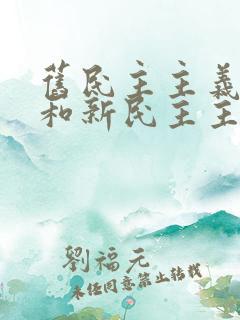 舊民主主義
和新民主主
劉福元
未经同意禁止转载